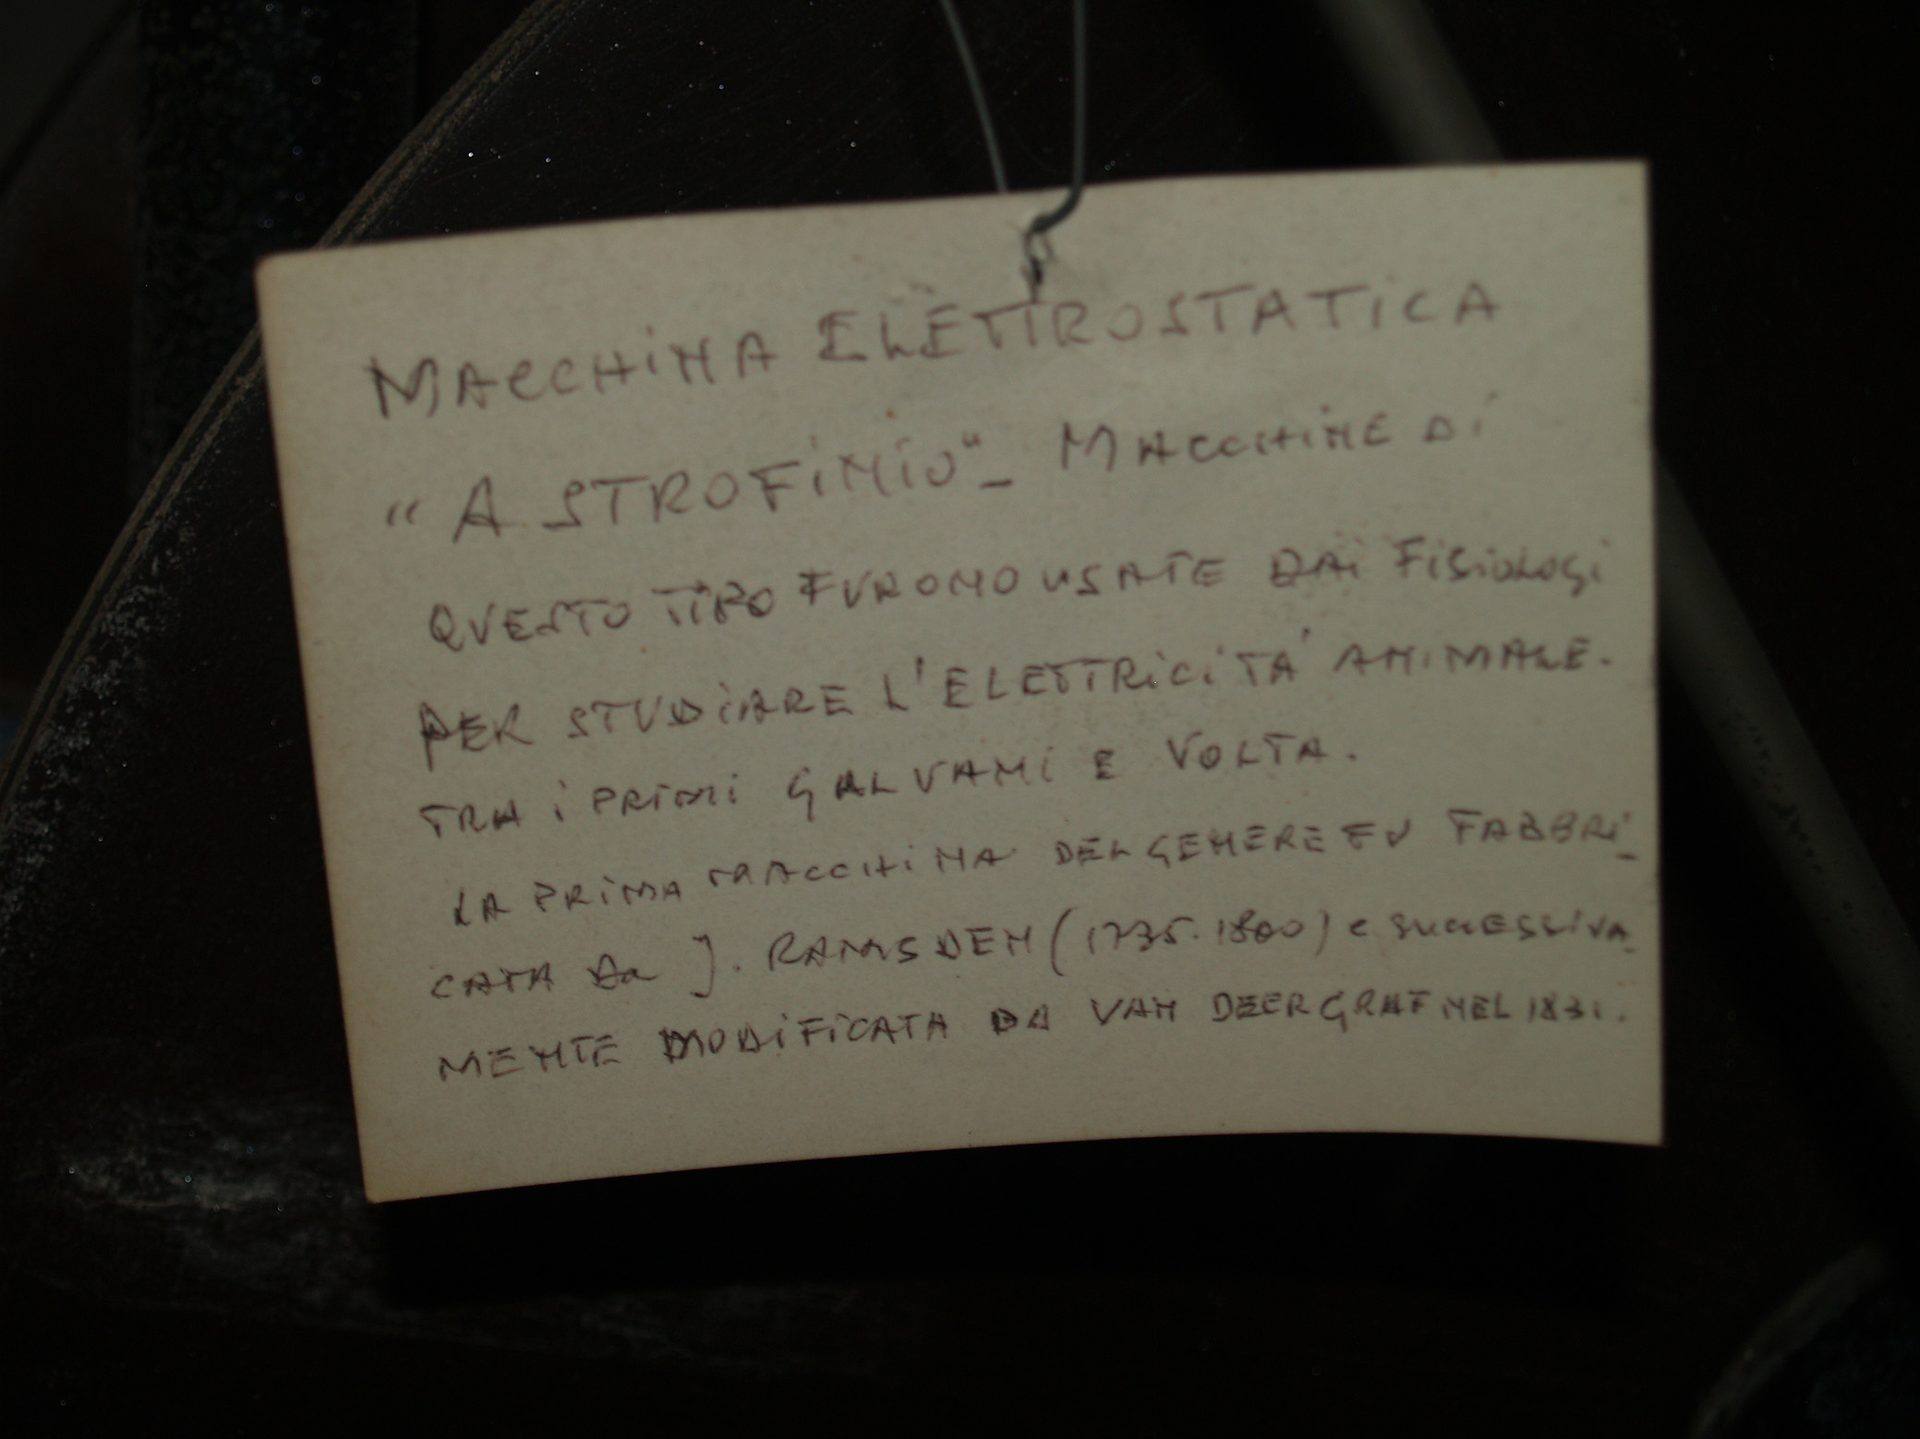 MACCHINA ELETTROSTATICA
"A STROFINIO"_ MACCHINE Di
QUESTO TIPO FURONO USATE DAI FISIOLOGI
PER STUDIARE L'ELETTRICITA' ANIMALE.
TRA I PRIMI GALVANI E VOLTA.
LA PRIMA MACCHINA DEL GENERE FU FABBRI_
CATA Da J. RAMSDEN (1735-1800) e SUCCESSIVA_
MENTE MODIFICATA DA VAN DEER GRAF NEL 1831.